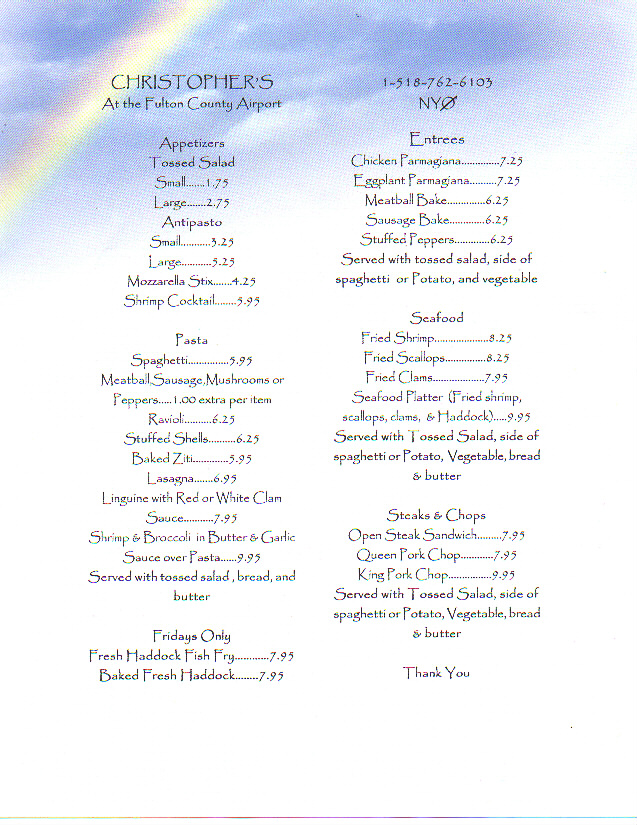 CHRISTOPHER'S
At the Fulton County Airport
Appetizers
Tossed Salad
Small.......1.75
Large.......2.75
Antipasto
Small...........3.25
Large...........5.25
Mozzarella Stix.......4.25
Shrimp Cocktail........5.95
Pasta
Spaghetti...............5.95
Meatball,Sausage,Mushrooms or
Peppers.....1.00 extra per item
Ravioli..........6.25
Stuffed Shells..........6.25
Baked Ziti.............5.95
Lasagna.......6.95
Linguine with Red or White Clam
Sauce...........7.95
Shrimp & Broccoli in Butter & Garlic
Sauce over Pasta......9.95
Served with tossed salad , bread, and
butter
Fridays Only
Fresh Haddock Fish Fry............7.95
Baked Fresh Haddock........7.95
1-518-762-6103
NYØ
Entrees
Chicken Parmagiana..............7.25
Eggplant Parmagiana..........7.25
Meatball Bake..............6.25
Sausage Bake.............6.25
Stuffed Peppers.............6.25
Served with tossed salad, side of
spaghetti or Potato, and vegetable
Seafood
Fried Shrimp....................8.25
Fried Scallops...............8.25
Fried Clams...................7.95
Seafood Platter (Fried shrimp,
scallops, clams, & Haddock).....9.95
Served with Tossed Salad, side of
spaghetti or Potato, Vegetable, bread
& butter
Steaks & Chops
Open Steak Sandwich.........7.95
Queen Pork Chop............7.95
King Pork Chop................9.95
Served with Tossed Salad, side of
spaghetti or Potato, Vegetable, bread
& butter
Thank You